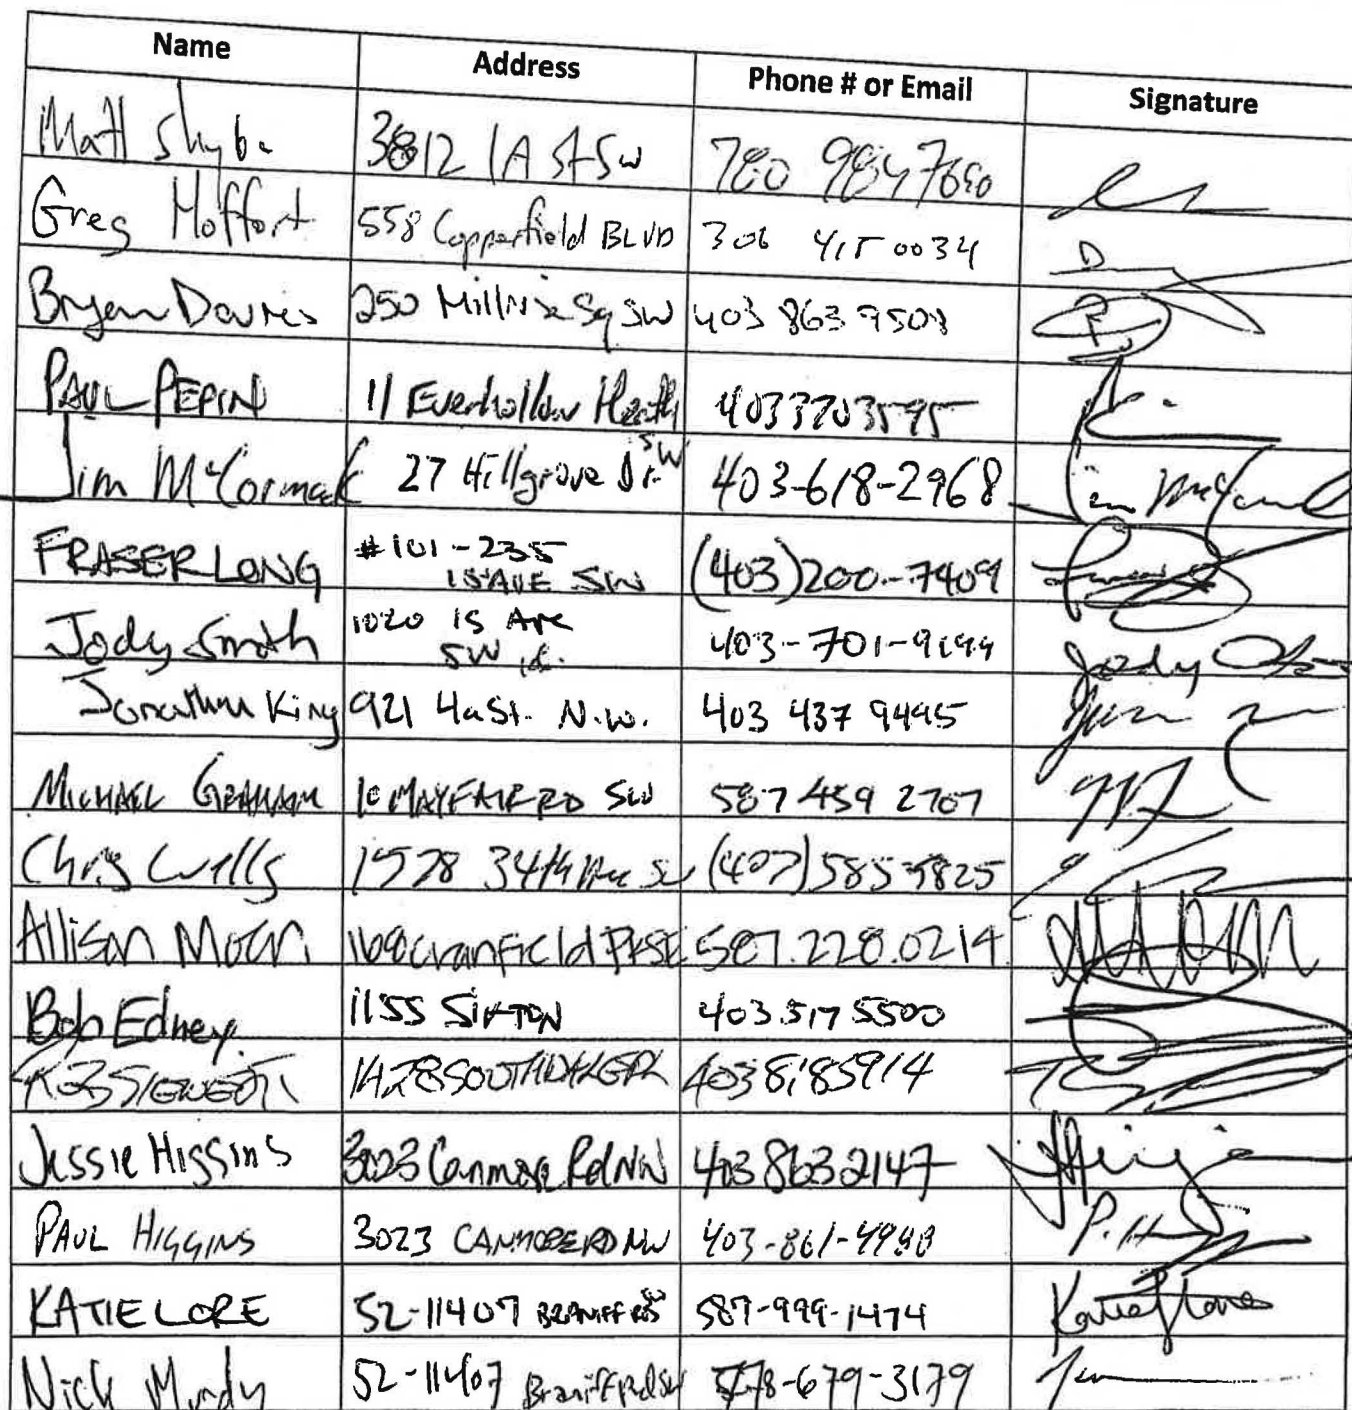 Name Address Phone # or Email Signature
Matt Skyba 3812 1A St SW 780
Greg Hoffort 558 Copperfield BLVD 306 415 0034
Bryan Davies 250 Millrise Sq SW 403 863 9508
PAUL PEPIN 11 Everhollow Heath SW 403 3703595
Jim McCormack 27 Hillgrove Dr. 403-618-2968
FRASER LONG #101-235 (403)200-7409
15 AVE SW
Jody Smith 1020 15 Ave 403-701-9199 Jody
SW
Jonathan King 921 4a St. N.W. 403 437 9495
MICHAEL GRAHAM 10 MAYFAIR RD SW 587 459 2707
Chris Wells 34th Ave SW
Allison Moen Cranfield PK SE 587.228.0214
Bob Edney 1155 SIFTON 403.517 5500
1428 SOUTHDALE PL 403 8185914
Jessie Higgins 3023 Canmore Rd NW 403 863 2147
PAUL HIGGINS 3023 CANMORE RD NW 403-861-4988 P.H
KATIE LORE 52-11407 BRANIFF RD SW 587-999-1474 Katie Lore
Nick Mundy 52-11407 Braniff Rd SW 578-679-3179